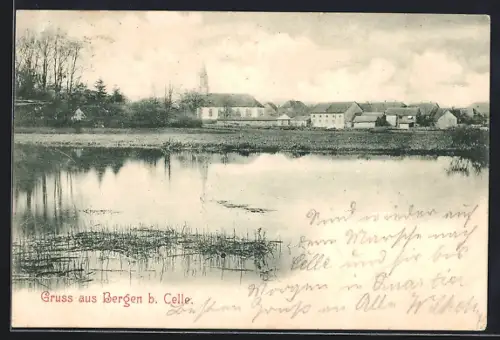 Gruss aus Bergen b. Celle.
Sind wieder auf
dem Marsche nach
Celle und sind bis
Morgen in Quartier
Besten Gruss an Alle Wilhelm